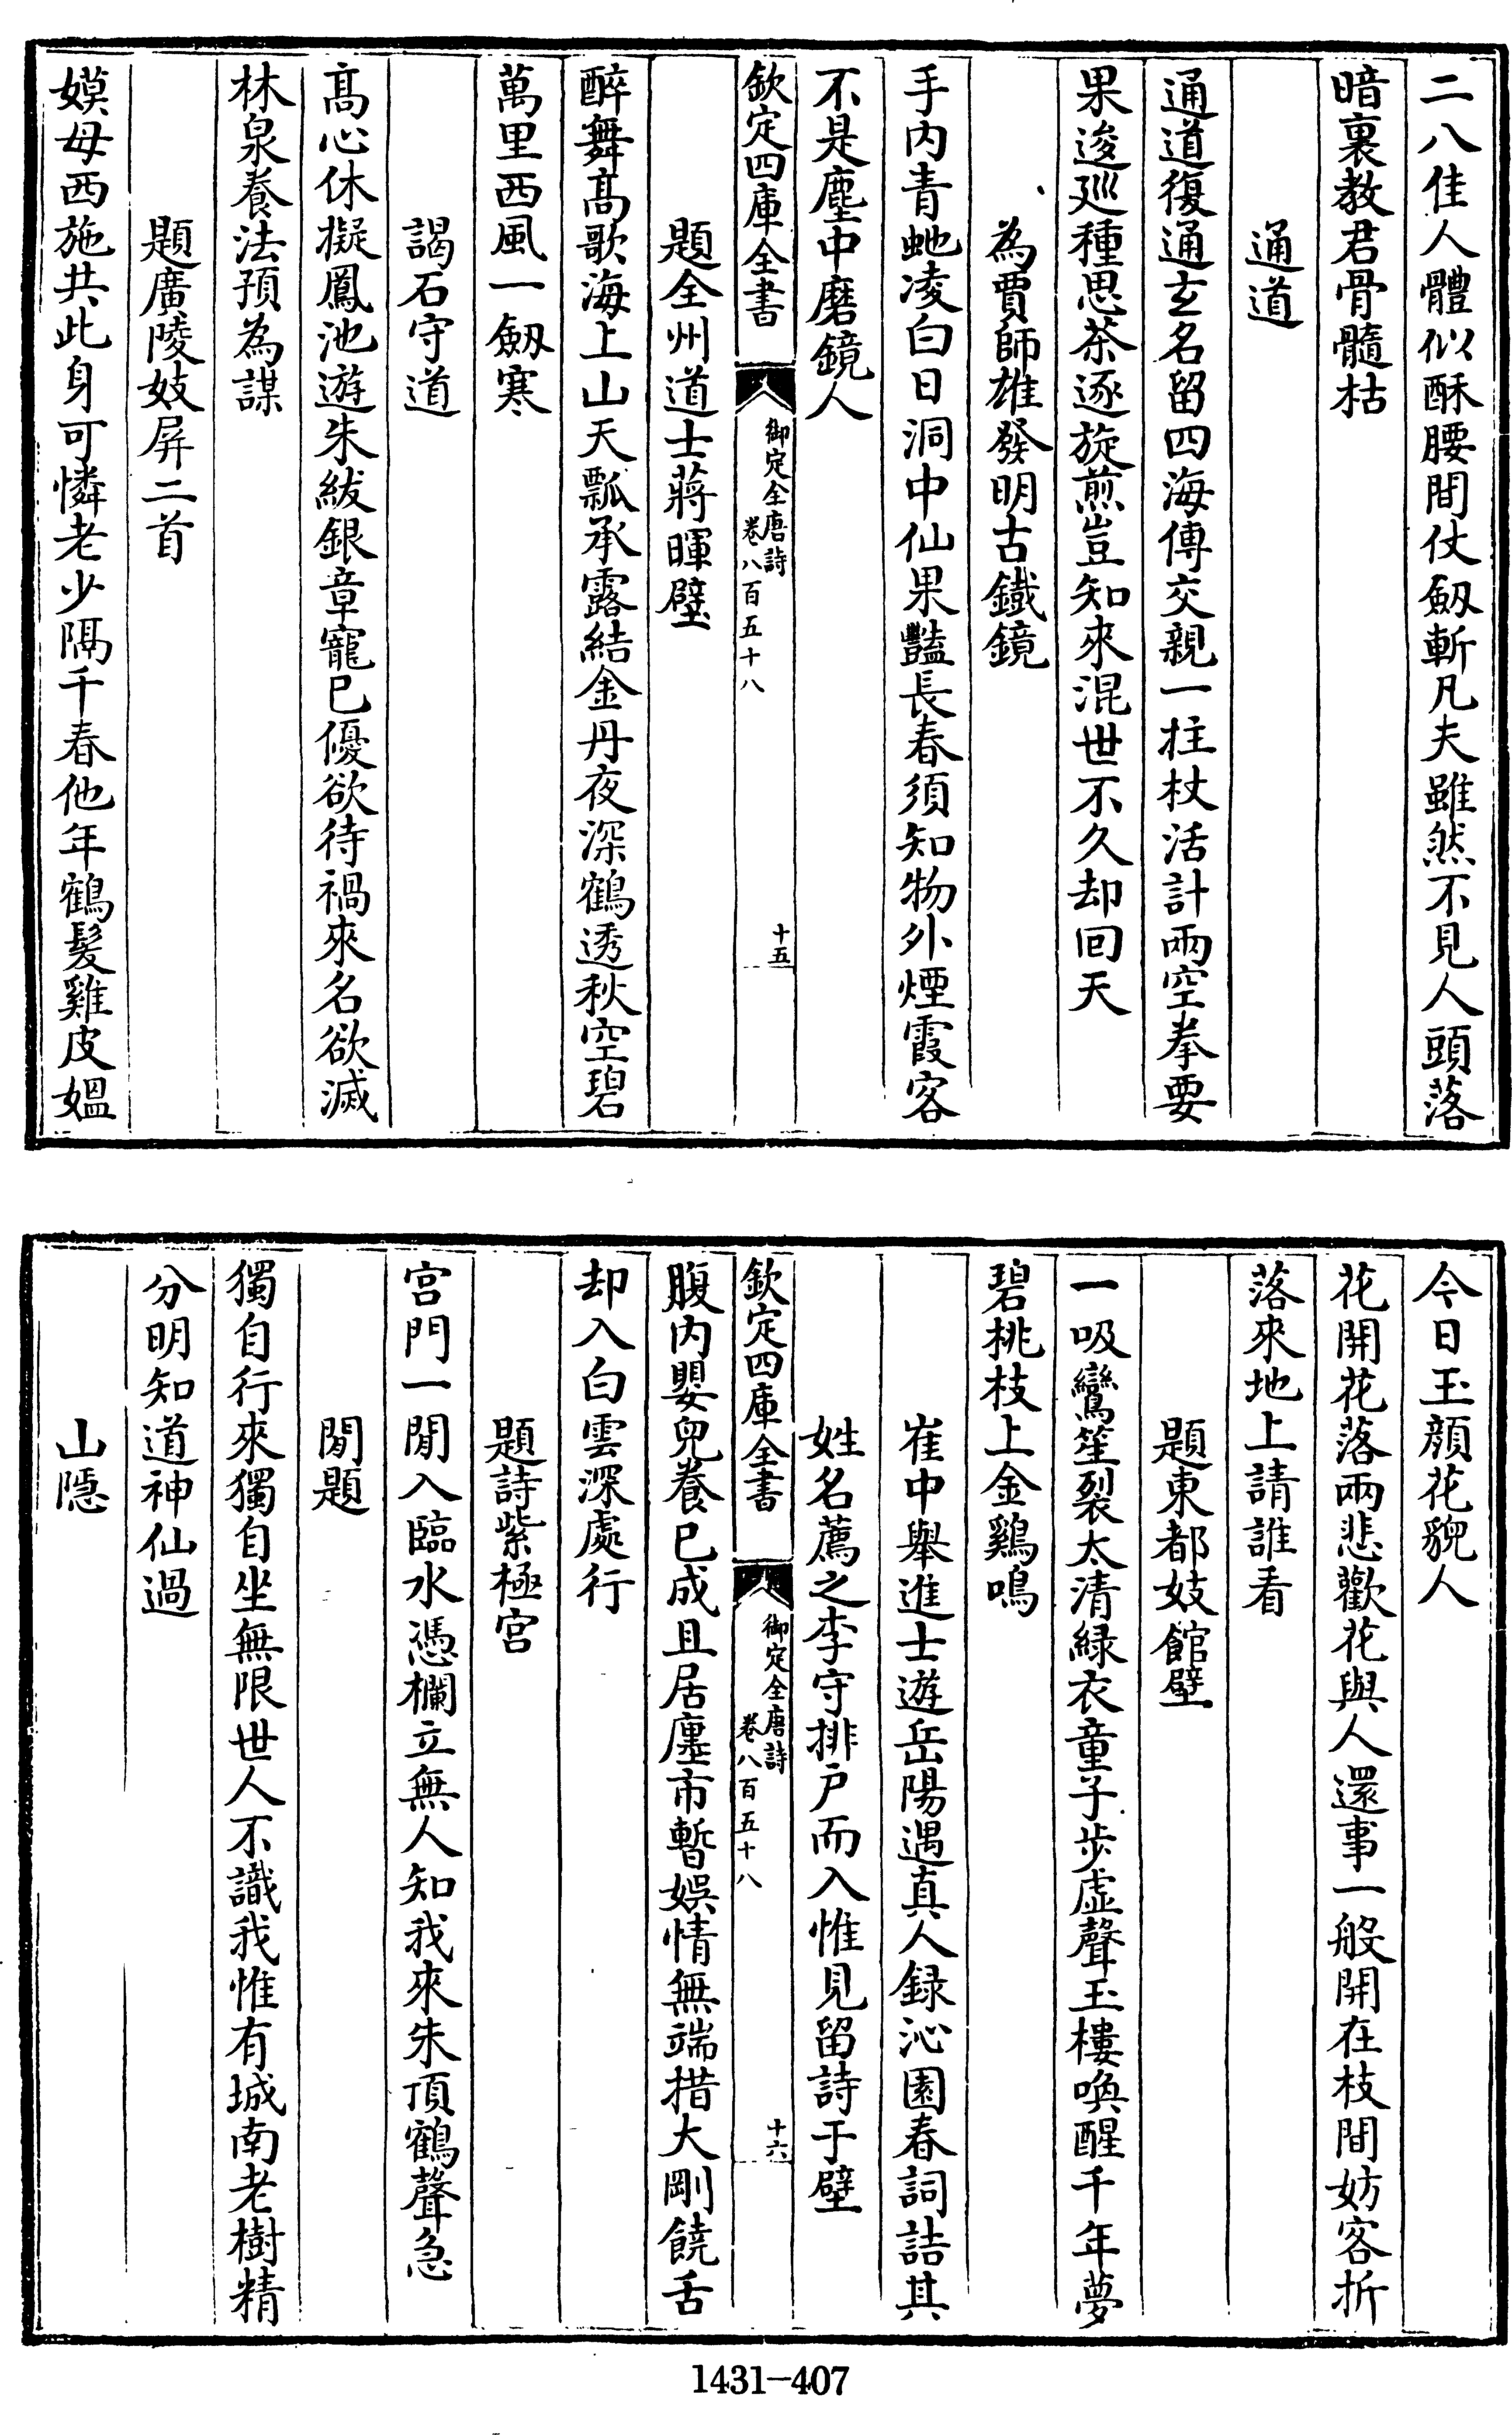 二八佳人體似酥腰間仗劔斬凡夫雖然不見人頭落
暗裏教君骨髓枯
通道
通道復通玄名留四海傳交親一拄杖活計兩空拳要
果逡廵種思茶逐旋煎豈知來混世不久却回天
為賈師雄發明古鐵鏡
手內青虵凌白日洞中仙果豔長春須知物外煙霞客
不是塵中磨鏡人
欽定四庫全書
御定全唐詩
卷八百五十八
十五
題全州道士蔣暉壁
醉舞髙歌海上山天瓢承露結金丹夜深鶴透秋空碧
萬里西風一劔寒
謁石守道
髙心休擬鳳池遊朱紱銀章寵已優欲待禍來名欲滅
林泉養法預為謀
題廣陵妓屏二首
嫫母西施共此身可憐老少隔千春他年鶴髮雞皮媼
今日玉顔花貌人
花開花落兩悲歡花與人還事一般開在枝間妨客折
落來地上請誰看
題東都妓館壁
一吸鸞笙裂太清緑衣童子步虛聲玉樓喚醒千年夢
碧桃枝上金鷄鳴
崔中舉進士遊岳陽遇真人録沁園春詞詰其
姓名薦之李守排戶而入惟見留詩于壁
欽定四庫全書
御定全唐詩
卷八百五十八
十六
腹內嬰兒養已成且居廛市暫娛情無端措大剛饒舌
却入白雲深處行
題詩紫極宮
宮門一閒入臨水憑欄立無人知我來朱頂鶴聲急
閒題
獨自行來獨自坐無限世人不識我惟有城南老樹精
分明知道神仙過
山隱
1431-407